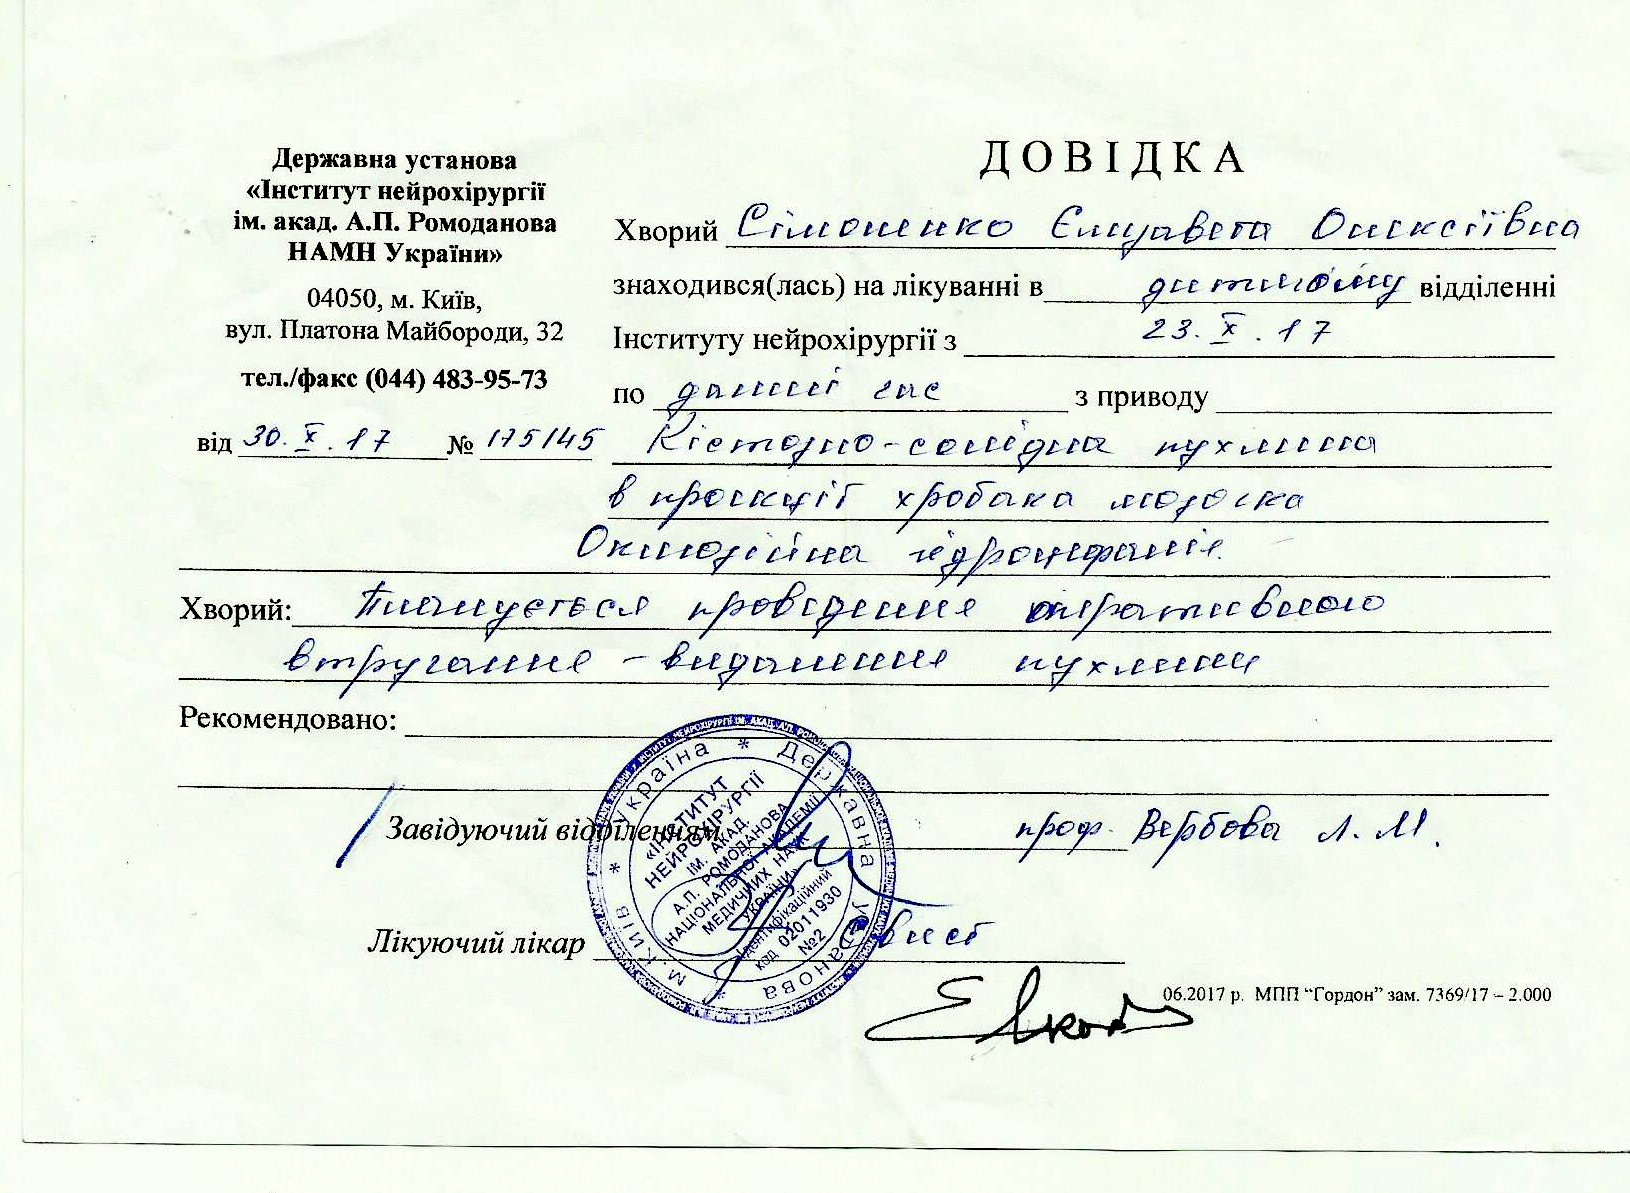 Державна установа
«Інститут нейрохірургії
ім. акад. А.П. Ромоданова
НАМН України»
04050, м. Київ,
вул. Платона Майбороди, 32
тел./факс (044) 483-95-73
від 30.X.17 № 175145
ДОВІДКА
Хворий Сімоненко Єлизавета Олексіївна
знаходився(лась) на лікуванні в дитячому відділенні
Інституту нейрохірургії з 23.X.17
по даний час з приводу
Кістозно-солідна пухлина
в проекції хробака мозочка
Оклюзійна гідроцефалія.
Хворий: Планується проведення оперативного
втручання – видалення пухлини
Рекомендовано:
Завідуючий відділенням проф. Вербова Л.М.
Лікуючий лікар
06.2017 р. МПП “Гордон” зам. 7369/17 – 2.000
* Україна * Державна установа * м.Київ
«ІНСТИТУТ
НЕЙРОХІРУРГІЇ
ІМ. АКАД.
А.П. РОМОДАНОВА
НАЦІОНАЛЬНОЇ АКАДЕМІЇ
МЕДИЧНИХ НАУК
УКРАЇНИ»
Ідентифікаційний
код 02011930
№2